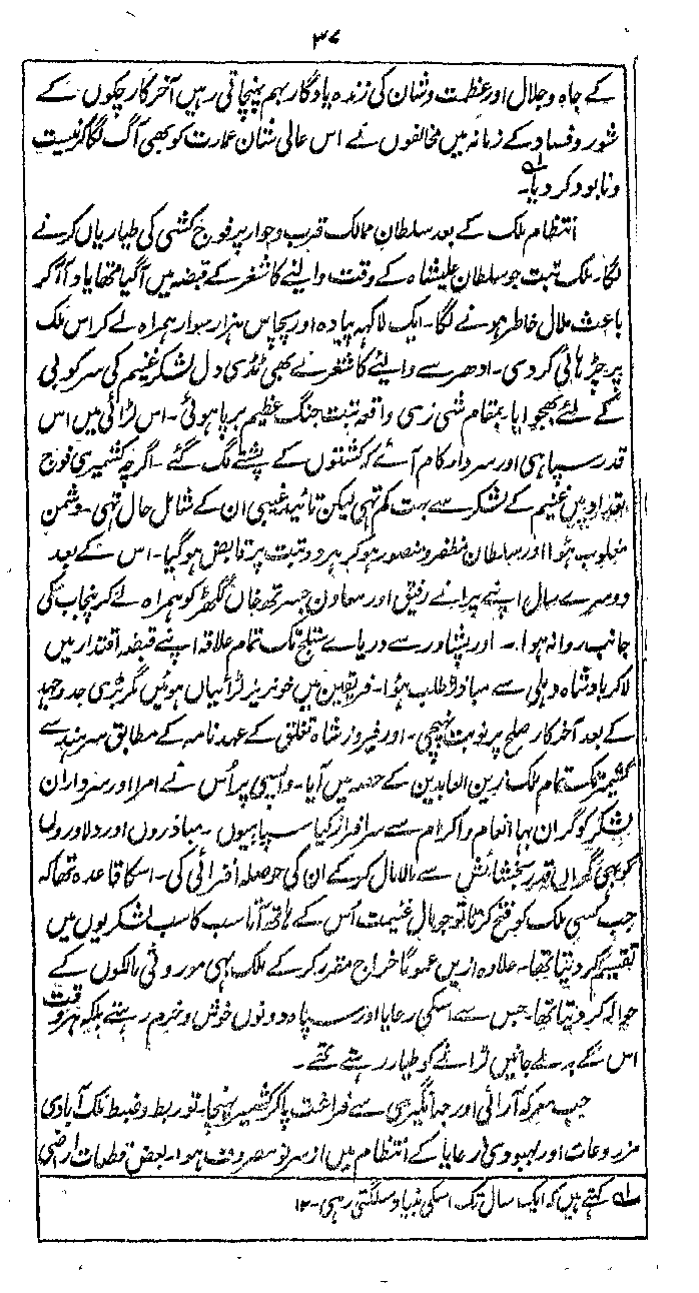 ۳۷
کے جاہ وجلال اور عظمت وشان کی زندہ یادگار بہم پہنچاتی رہیں آخر کار چکوں کے
شور وفساد کے زمانہ میں مخالفوں نے اس عالی شان عمارت کو بھی آگ لگا کر نیست
ونابود کر دیا۔ ؎۱
انتظام ملک کے بعد سلطان ممالک قرب وجوار پر فوج کشی کی طیاریاں کرنے
لگا۔ ملک تبت جو سلطان علیشاہ کے وقت والئے کاشغر کے قبضہ میں آگیا تھا یاد آ آ کر
باعث ملال خاطر ہونے لگا۔ ایک لاکہہ پیادہ اور پچاس ہزار سوار ہمراہ لے کر اس ملک
پر چڑہائی کر دی۔ ادھر سے والئے کاشغر نے بھی ٹڈی دل لشکر غنیم کی سرکوبی
کے لئے بھجوایا۔ بمقام شی زسی واقعہ تبت جنگ عظیم برپا ہوئی۔ اس لڑائی میں اس
قدر سپاہی اور سردار کام آئے کہ کشتوں کے پشتے لگ گئے۔ اگرچہ کشمیری فوج
تعداد میں غنیم کے لشکر سے بہت کم تہی لیکن تائید غیبی ان کے شامل حال تہی۔ دشمن
مغلوب ہؤا اور سلطان مظفر ومنصور ہو کر ہر دو تبت پر قابض ہو گیا۔ اس کے بعد
دوسرے سال اپنے پرانے رفیق اور معاون جسرتھ خاں گکھڑ کو ہمراہ لے کر پنجاب کی
جانب روانہ ہوا۔ اور پشاور سے دریاے ستلج تک تمام علاقہ اپنے قبضہ اقتدار میں
لا کر بادشاہ دہلی سے مبادز طلب ہؤا۔ فریقین میں خونریز لڑائیاں ہوئیں مگر بڑی جدوجہد
کے بعد آخر کار صلح پر نوبت پہنچی۔ اور فیروز شاہ تغلق کے عہد نامہ کے مطابق سرہند سے
کشمیر تک تمام ملک زین العابدین کے حصہ میں آیا۔ واپسی پر اُس نے امرا اور سرداران
لشکر کو گراں بہا انعام واکرام سے سرافراز کیا سپاہیوں۔ مبادزوں اور دلاوروں
کو بھی گراں قدر بخشائش سے مالامال کر کے ان کی حوصلہ افزائی کی۔ اسکا قاعدہ تھا کہ
جب کسی ملک کو فتح کرتا تو جو مال غنیمت اُس کے ہاتھ آتا سب کا سب لشکریوں میں
تقسیم کر دیتا تھا۔ علاوہ ازیں عموماً خراج مقرر کر کے ملک بہی موروثی مالکوں کے
حوالہ کر دیتا تھا۔ جس سے اسکی رعایا اور سپاہ دونوں خوش وخرم رہتے بلکہ ہر وقت
اس کے بدلے جانیں لڑانے کو طیار رہتے تھے۔
جب معرکہ آرائی اور جہانگیری سے فراغت پا کر کشمیر پہنچا۔ تو ربط وضبط ملک آبادی
مزروعات اور بہبودی رعایا کے انتظام میں از سر نو مصروف ہوا۔ بعض قطعات اراضی
؎۱ کہتے ہیں کہ ایک سال تک اسکی بنیاد سلگتی رہی۔ ۱۲